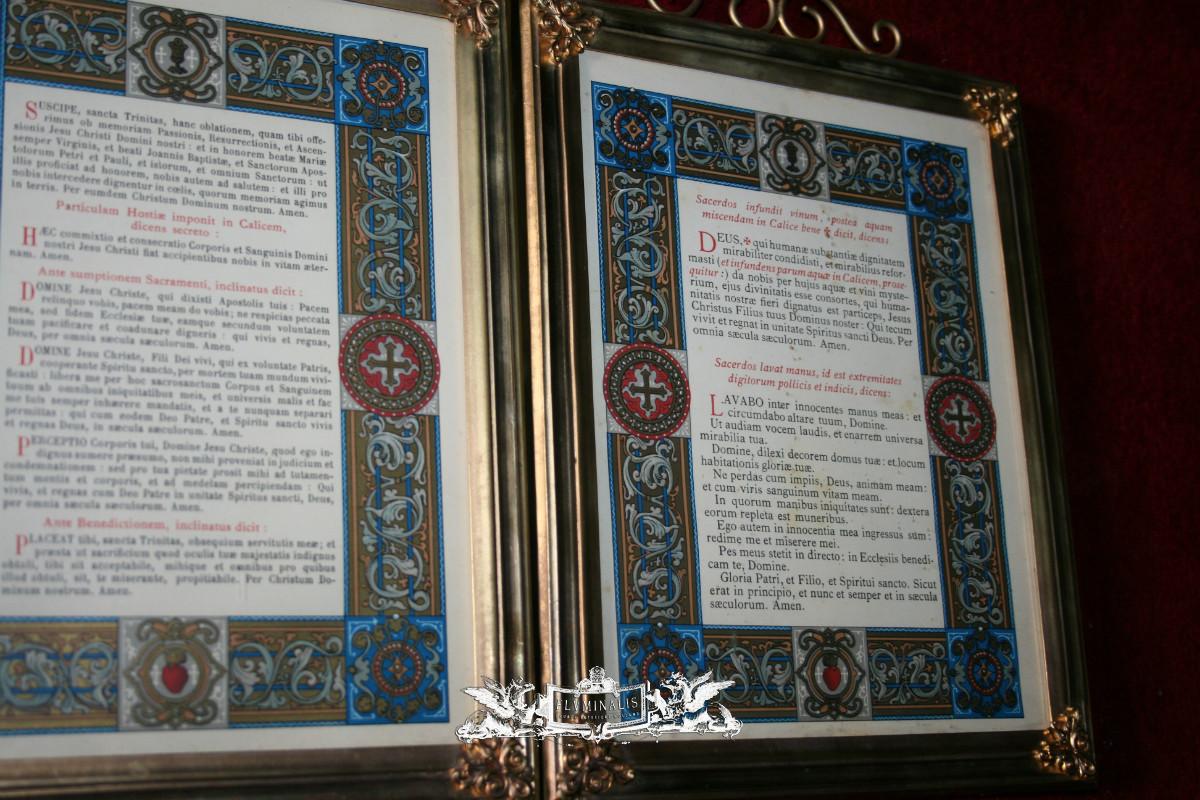 SUSCIPE, sancta Trinitas, hanc oblationem, quam tibi offe-
rimus ob memoriam Passionis, Resurrectionis, et Ascen-
sionis Jesu Christi Domini nostri : et in honorem beatæ Mariæ
semper Virginis, et beati Joannis Baptistæ, et Sanctorum Apos-
tolorum Petri et Pauli, et istorum, et omnium Sanctorum : ut
illis proficiat ad honorem, nobis autem ad salutem : et illi pro
nobis intercedere dignentur in cœlis, quorum memoriam agimus
in terris. Per eumdem Christum Dominum nostrum. Amen.
Particulam Hostiæ imponit in Calicem,
dicens secreto :
HÆC commixtio et consecratio Corporis et Sanguinis Domini
nostri Jesu Christi fiat accipientibus nobis in vitam æter-
nam. Amen.
Ante sumptionem Sacramenti, inclinatus dicit :
DOMINE Jesu Christe, qui dixisti Apostolis tuis : Pacem
relinquo vobis, pacem meam do vobis; ne respicias peccata
mea, sed fidem Ecclesiæ tuæ, eamque secundum voluntatem
tuam pacificare et coadunare digneris : qui vivis et regnas,
Deus, per omnia sæcula sæculorum. Amen.
DOMINE Jesu Christe, Fili Dei vivi, qui ex voluntate Patris,
cooperante Spiritu sancto, per mortem tuam mundum vivi-
ficasti : libera me per hoc sacrosanctum Corpus et Sanguinem
tuum ab omnibus iniquitatibus meis, et universis malis et fac
me tuis semper inhærere mandatis, et a te nunquam separari
permittas : qui cum eodem Deo Patre, et Spiritu sancto vivis
et regnas Deus, in sæcula sæculorum. Amen.
PERCEPTIO Corporis tui, Domine Jesu Christe, quod ego in-
dignus sumere præsumo, non mihi proveniat in judicium et
condemnationem : sed pro tua pietate prosit mihi ad tutamen-
tum mentis et corporis, et ad medelam percipiendam : Qui
vivis, et regnas cum Deo Patre in unitate Spiritus sancti, Deus,
per omnia sæcula sæculorum. Amen.
Ante Benedictionem, inclinatus dicit :
PLACEAT tibi, sancta Trinitas, obsequium servitutis meæ; et
præsta ut sacrificium quod oculis tuæ majestatis indignus
obtuli, tibi sit acceptabile, mihique et omnibus pro quibus
illud obtuli, sit, te miserante, propitiabile. Per Christum Do-
minum nostrum. Amen.
Sacerdos infundit vinum, postea aquam
miscendam in Calice bene ✠ dicit, dicens:
DEUS, ✠ qui humanæ substantiæ dignitatem
mirabiliter condidisti, et mirabilius refor-
masti (et infundens parum aquæ in Calicem, prose-
quitur :) da nobis per hujus aquæ et vini myste-
rium, ejus divinitatis esse consortes, qui huma-
nitatis nostræ fieri dignatus est particeps, Jesus
Christus Filius tuus Dominus noster : Qui tecum
vivit et regnat in unitate Spiritus sancti Deus. Per
omnia sæcula sæculorum. Amen.
Sacerdos lavat manus, id est extremitates
digitorum pollicis et indicis, dicens:
LAVABO inter innocentes manus meas : et
circumdabo altare tuum, Domine.
Ut audiam vocem laudis, et enarrem universa
mirabilia tua.
Domine, dilexi decorem domus tuæ : et locum
habitationis gloriæ tuæ.
Ne perdas cum impiis, Deus, animam meam :
et cum viris sanguinum vitam meam.
In quorum manibus iniquitates sunt : dextera
eorum repleta est muneribus.
Ego autem in innocentia mea ingressus sum :
redime me et miserere mei.
Pes meus stetit in directo : in Ecclesiis benedi-
cam te, Domine.
Gloria Patri, et Filio, et Spiritui sancto. Sicut
erat in principio, et nunc et semper et in sæcula
sæculorum. Amen.
FLUMINALIS